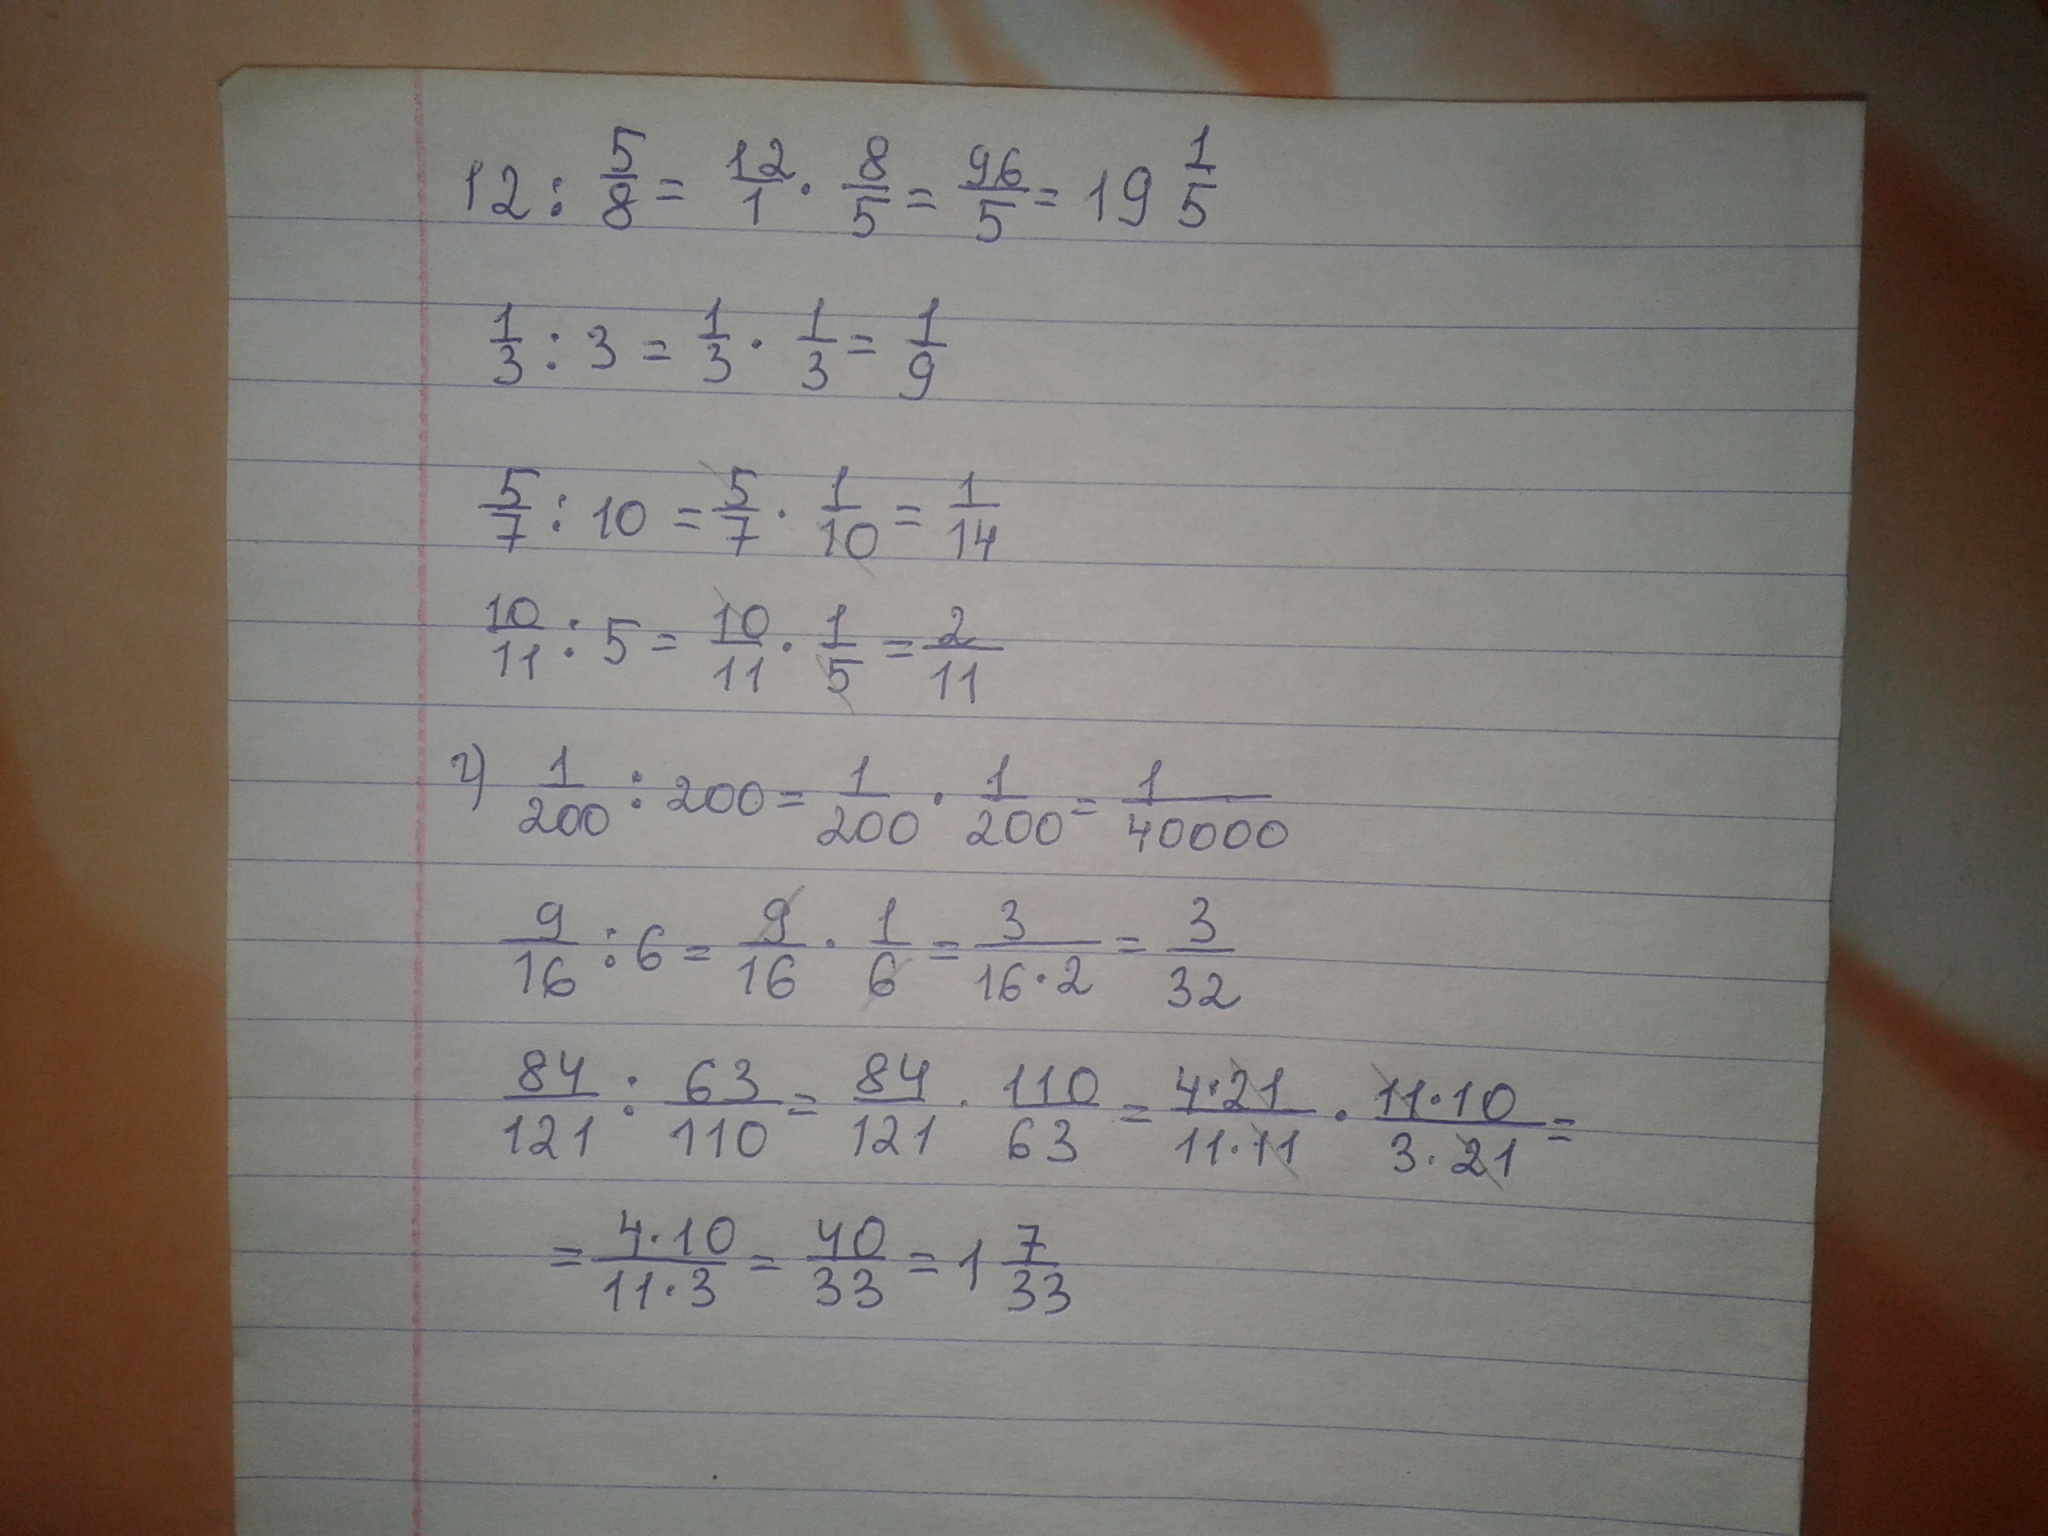 12 : 5/8 = 12/1 · 8/5 = 96/5 = 19 1/5
1/3 : 3 = 1/3 · 1/3 = 1/9
5/7 : 10 = 5/7 · 1/10 = 1/14
10/11 : 5 = 10/11 · 1/5 = 2/11
г) 1/200 : 200 = 1/200 · 1/200 = 1/40000
9/16 : 6 = 9/16 · 1/6 = 3/16·2 = 3/32
84/121 : 63/110 = 84/121 · 110/63 = 4·21/11·11 · 11·10/3·21 =
= 4·10/11·3 = 40/33 = 1 7/33